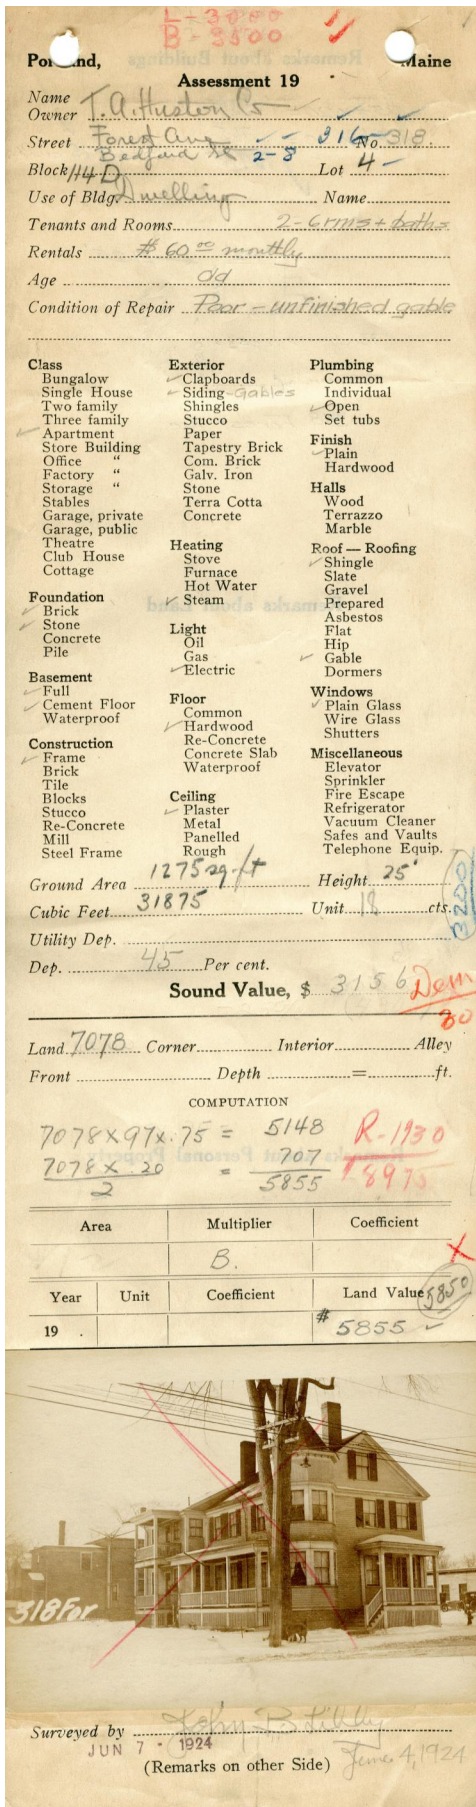 L - 3000
B - 3500
Portland, Maine
Assessment 19
Name
Owner T. A. Huston Co
Street Forest Ave 316- No 318.
Bedford St 2-8
Block 114 D Lot 4 -
Use of Bldg. Dwelling Name
Tenants and Rooms 2-6 rms + baths
Rentals $ 60.00 monthly
Age old
Condition of Repair Poor - unfinished gable
Class
Bungalow
Single House
Two family
Three family
✓ Apartment
Store Building
Office "
Factory "
Storage "
Stables
Garage, private
Garage, public
Theatre
Club House
Cottage
Foundation
✓ Brick
✓ Stone
Concrete
Pile
Basement
✓ Full
✓ Cement Floor
Waterproof
Construction
✓ Frame
Brick
Tile
Blocks
Stucco
Re-Concrete
Mill
Steel Frame
Exterior
✓ Clapboards
✓ Siding - Gables
Shingles
Stucco
Paper
Tapestry Brick
Com. Brick
Galv. Iron
Stone
Terra Cotta
Concrete
Heating
Stove
Furnace
Hot Water
✓ Steam
Light
Oil
Gas
✓ Electric
Floor
Common
✓ Hardwood
Re-Concrete
Concrete Slab
Waterproof
Ceiling
✓ Plaster
Metal
Panelled
Rough
Plumbing
Common
Individual
✓ Open
Set tubs
Finish
✓ Plain
Hardwood
Halls
Wood
Terrazzo
Marble
Roof — Roofing
✓ Shingle
Slate
Gravel
Prepared
Asbestos
Flat
Hip
✓ Gable
Dormers
Windows
✓ Plain Glass
Wire Glass
Shutters
Miscellaneous
Elevator
Sprinkler
Fire Escape
Refrigerator
Vacuum Cleaner
Safes and Vaults
Telephone Equip.
Ground Area 1275 sq. ft Height 25'
Cubic Feet 31875 Unit 18 cts.
3200
Utility Dep.
Dep. 45 Per cent.
Sound Value, $ 3156
Land 7078 Corner Interior Alley
Front Depth = ft.
COMPUTATION
7078 x 97 x .75 = 5148
7078 x .20 = 707
2
5855
R-1930
8975
Area Multiplier Coefficient
B.
Year Unit Coefficient Land Value 5850
19 . # 5855 ✓
318 For
Surveyed by John B Libby
JUN 7 - 1924
June 4, 1924
(Remarks on other Side)